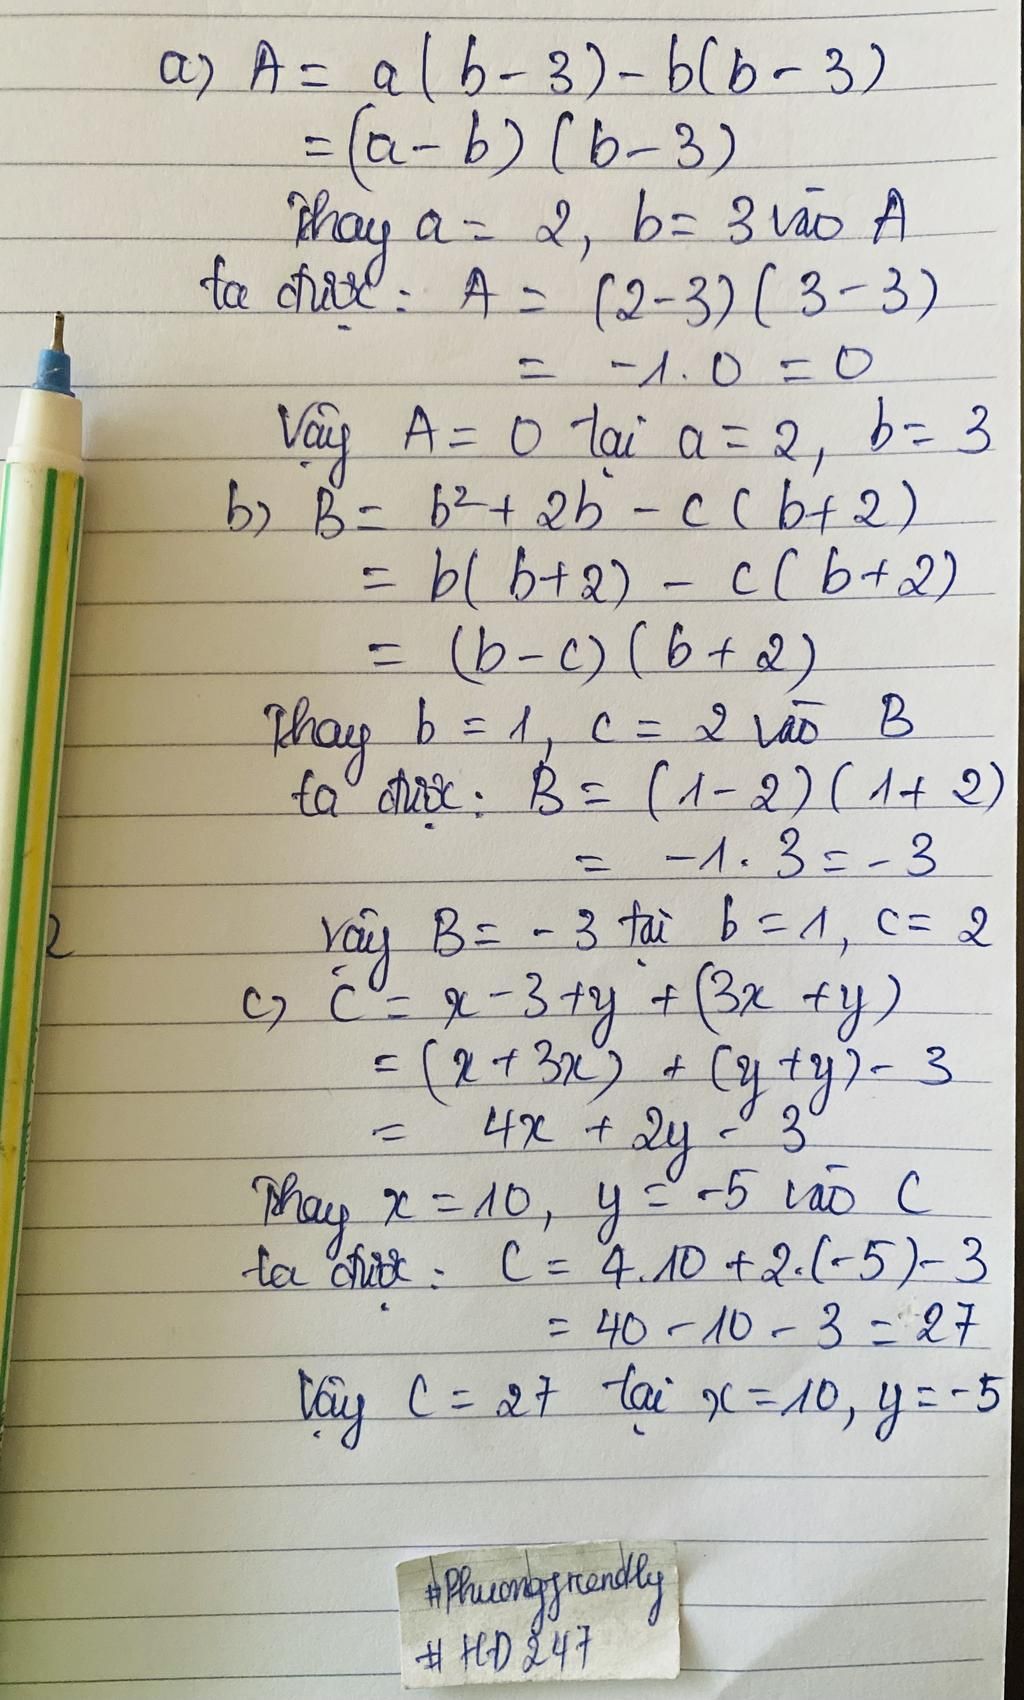 a) A = a(b - 3) - b(b - 3)
= (a - b) (b - 3)
Thay a = 2, b = 3 vào A
ta được: A = (2-3)(3-3)
= -1.0 = 0
Vậy A = 0 tại a = 2, b = 3
b) B = b² + 2b - c(b+2)
= b(b+2) - c(b+2)
= (b-c)(b+2)
Thay b = 1, c = 2 vào B
ta được: B = (1-2)(1+2)
= -1.3 = -3
2
Vậy B = -3 tại b = 1, c = 2
c) C = x - 3 + y + (3x + y)
= (x + 3x) + (y + y) - 3
= 4x + 2y - 3
Thay x = 10, y = -5 vào C
ta được: C = 4.10 + 2.(-5) - 3
= 40 - 10 - 3 = 27
Vậy C = 27 tại x = 10, y = -5
#Phuongfriendly
#HD247